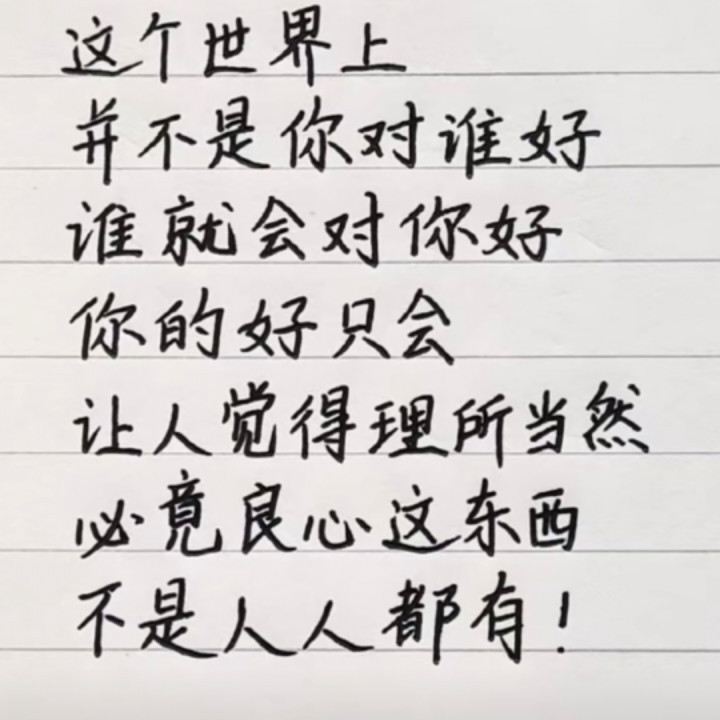 这个世界上
并不是你对谁好
谁就会对你好
你的好只会
让人觉得理所当然
必竟良心这东西
不是人人都有！